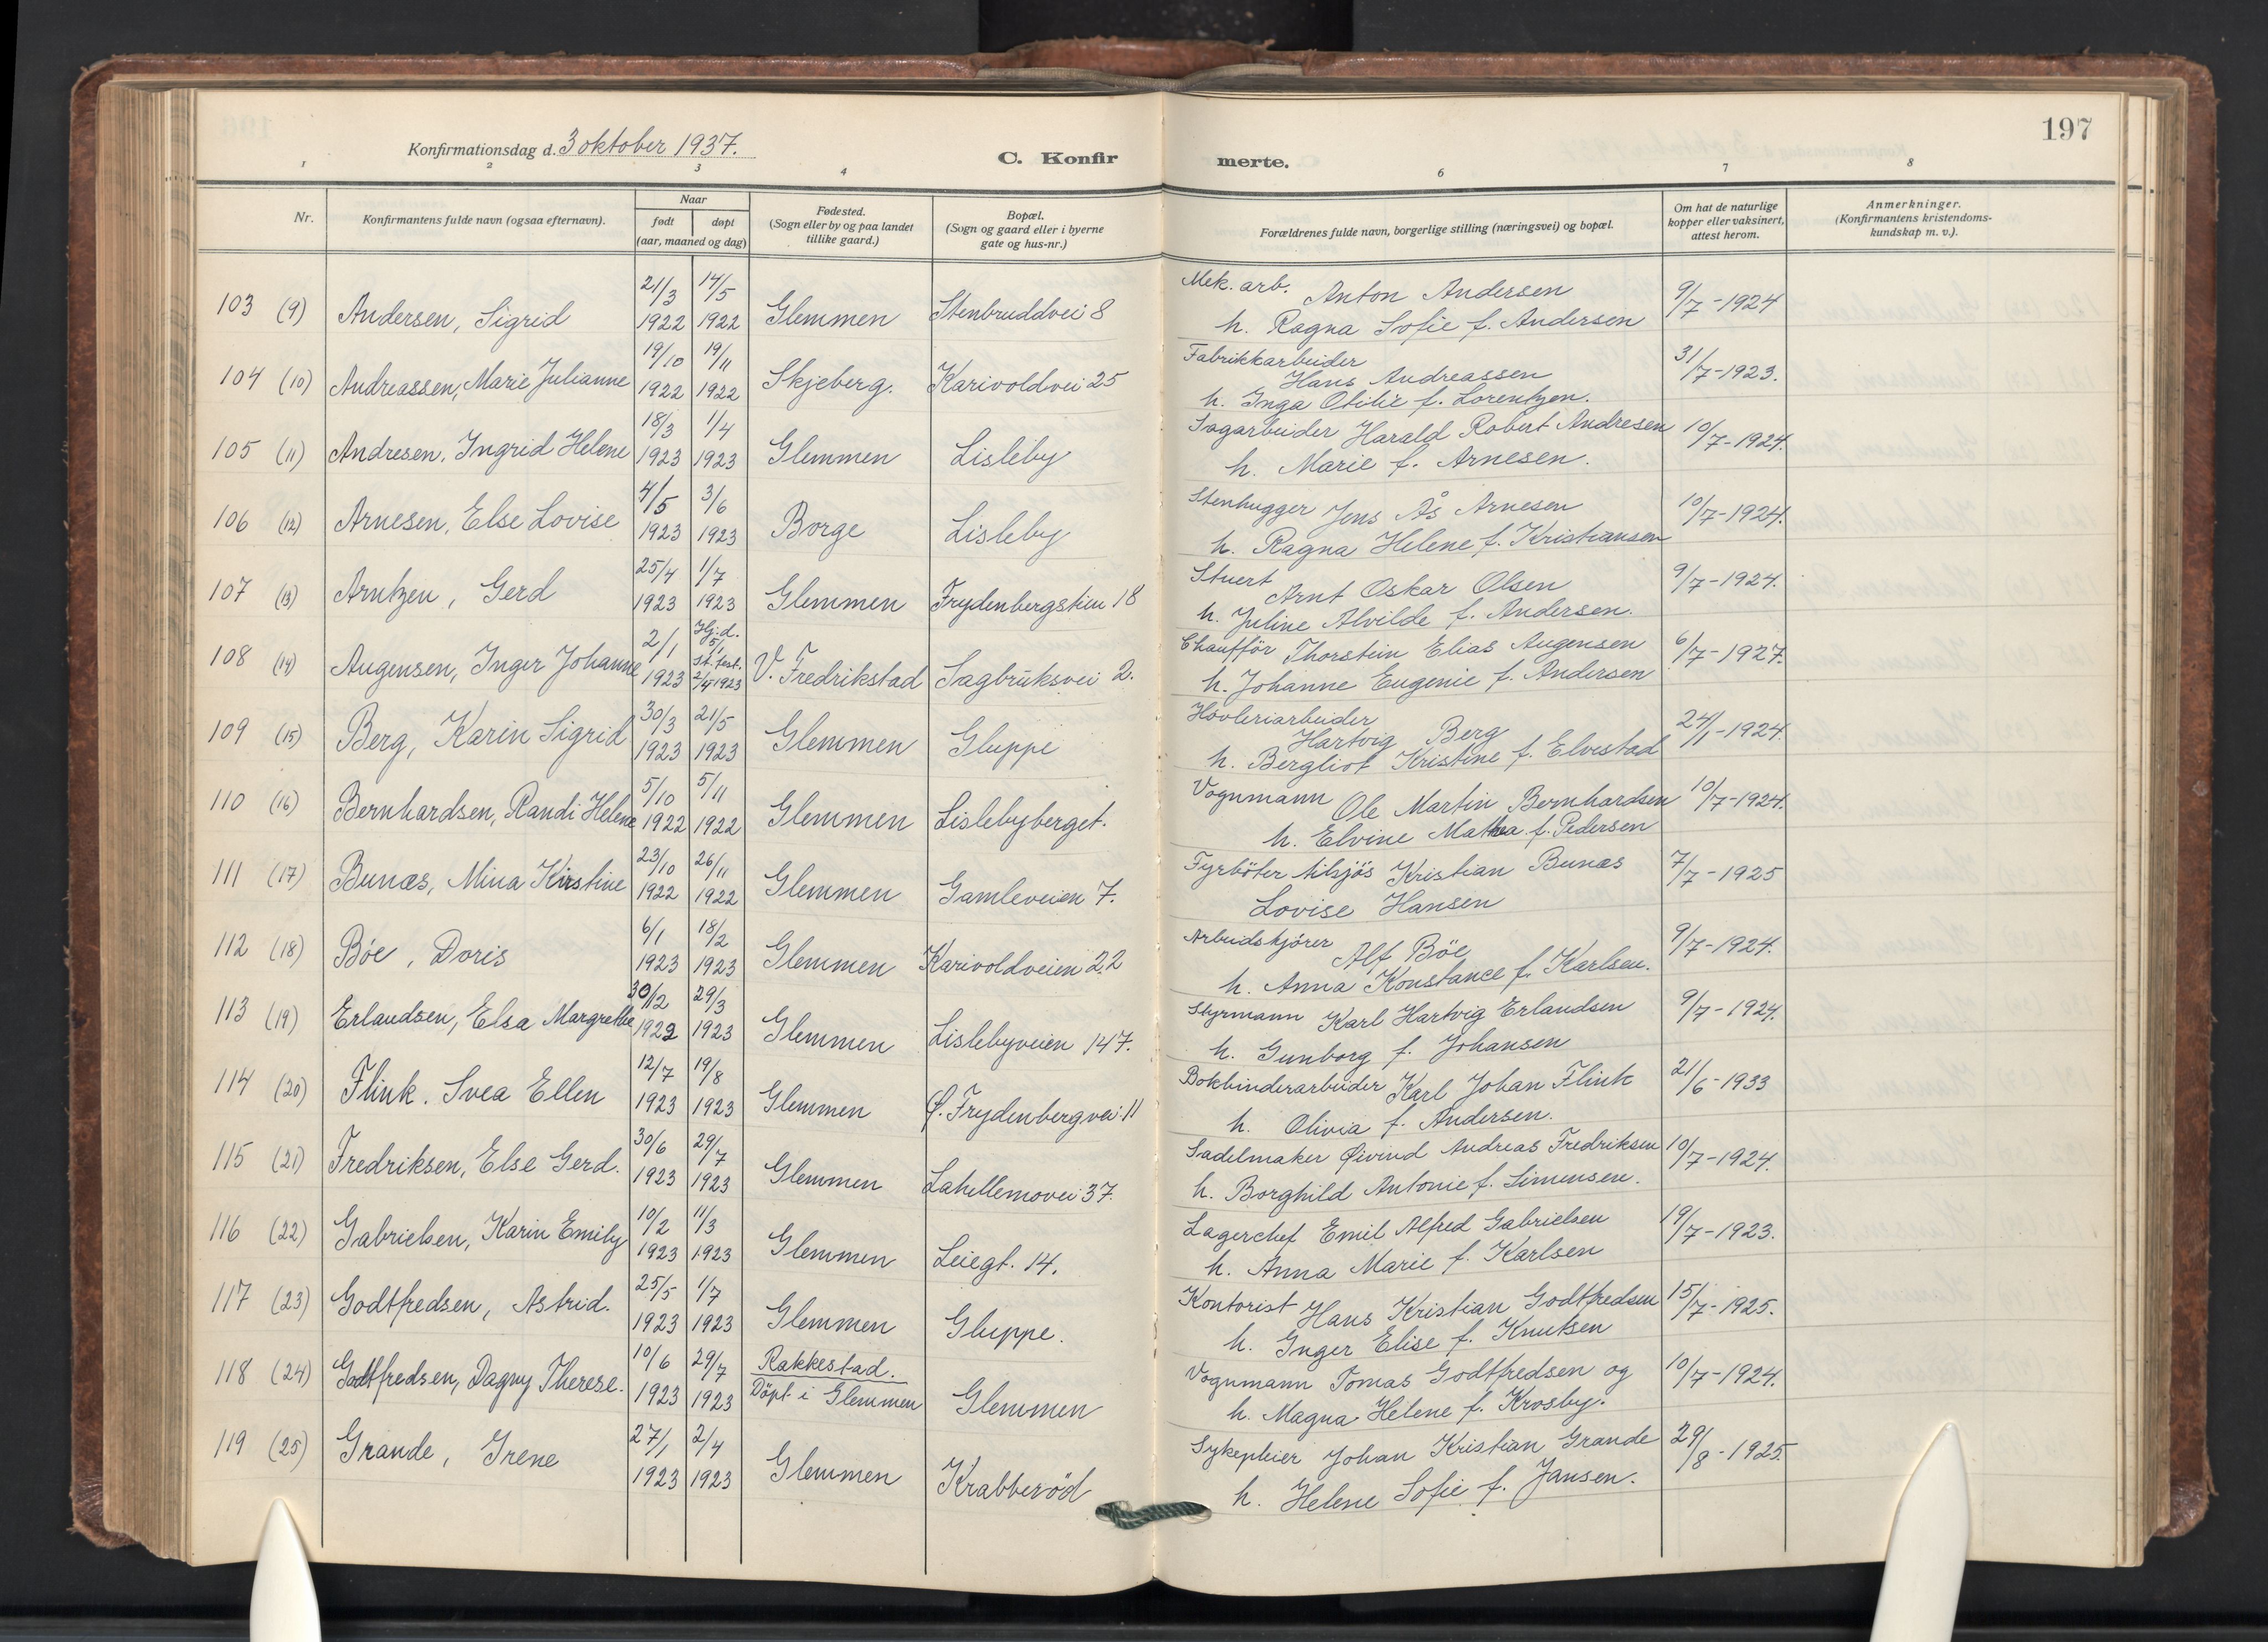 197
Konfirmationsdag d. 3 oktober 1937.
C. Konfir merte.
1 2 3 4 6 7 8
Nr.
Konfirmantens fulde navn (ogsaa efternavn).
Naar
født døpt
(aar, maaned og dag)
Fødested.
(Sogn eller by og paa landet
tillike gaard.)
Bopæl.
(Sogn og gaard eller i byerne
gate og hus-nr.)
Forældrenes fulde navn, borgerlige stilling (næringsvei) og bopæl.
Om hat de naturlige
kopper eller vaksinert,
attest herom.
Anmerkninger.
(Konfirmantens kristendoms-
kundskap m. v.).
103 (9) Andersen, Sigrid 21/3 1922 14/5 1922 Glemmen Stenbruddvei 8
Mek. arb. Anton Andersen 9/7-1924
h. Ragna Sofie f. Andersen
104 (10) Andreassen, Marie Julianne 19/10 1922 19/11 1922 Skjeberg. Karivoldvei 25
Fabrikkarbeider
Hans Andreassen 31/7-1923.
h. Inga Otilie f. Lorentzen.
105 (11) Andresen, Ingrid Helene 18/3 1923 1/4 1923 Glemmen Lisleby
Sagarbeider Harald Robert Andresen 10/7-1924.
h. Marie f. Arnesen.
106 (12) Arnesen, Else Lovise 4/5 1923 3/6 1923 Borge Lisleby
Stenhugger Jens Ås Arnesen 10/7-1924.
h. Ragna Helene f. Kristiansen
107 (13) Arntzen, Gerd 25/4 1923 1/7 1923 Glemmen Frydenbergstien 18
Stuert Arnt Oskar Olsen 9/7-1924.
h. Juline Alvilde f. Andersen.
108 (14) Augensen, Inger Johanne 2/1 1923 Hj. d. 5/1 St. fest. 2/4 1923 V. Fredrikstad Sagbruksvei 2.
Chaufför Thorstein Elias Augensen 6/7-1927.
h. Johanne Eugenie f. Andersen
109 (15) Berg, Karin Sigrid 30/3 1923 21/5 1923 Glemmen Gluppe
Hövleriarbeider
Hartvig Berg 24/1-1924.
h. Bergliot Kristine f. Elvestad
110 (16) Bernhardsen, Randi Helene 5/10 1922 5/11 1922 Glemmen Lislebyberget.
Vognmann Ole Martin Bernhardsen 10/7-1924.
h. Elvine Mathea f. Pedersen
111 (17) Bunæs, Mina Kirstine 23/10 1922 26/11 1922 Glemmen Gamleveien 7.
Fyrböter Kristian Bunæs 7/7-1925
Lovise Hansen
112 (18) Böe, Doris 6/1 1923 18/2 1923 Glemmen Karivoldveien 22
Arbeidskjörer Alf Böe 9/7-1924.
h. Anna Konstance f. Karlsen.
113 (19) Erlandsen, Elsa Margrethe 30/12 1922 29/3 1923 Glemmen Lislebyveien 147.
Styrmann Karl Hartvig Erlandsen 9/7-1924.
h. Gunborg f. Johansen
114 (20) Flink. Svea Ellen 12/7 1923 19/8 1923 Glemmen Ø. Frydenbergvei 11
Bokbinderarbeider Karl Johan Flink 21/6-1933
h. Olivia f. Andersen.
115 (21) Fredriksen, Else Gerd. 30/6 1923 29/7 1923 Glemmen Lahellemovei 37.
Sadelmaker Øivind Andreas Fredriksen 10/7-1924.
h. Borghild Antonie f. Simensen.
116 (22) Gabrielsen, Karin Emily 10/2 1923 11/3 1923 Glemmen Leiegt. 14.
Lagerchef Emil Alfred Gabrielsen 19/7-1923.
h. Anna Marie f. Karlsen
117 (23) Godtfredsen, Astrid. 25/5 1923 1/7 1923 Glemmen Gluppe.
Kontorist Hans Kristian Godtfredsen 15/7-1925.
h. Inger Elise f. Knutsen
118 (24) Godtfredsen, Dagny Therese. 10/6 1923 29/7 1923 Rakkestad. Döpt i Glemmen Glemmen
Vognmann Tomas Godtfredsen og 10/7-1924.
h. Magna Helene f. Krosby.
119 (25) Grande, Irene 27/1 1923 2/4 1923 Glemmen Krabberöd
Sykepleier Johan Kristian Grande 29/8-1925.
h. Helene Sofie f. Jansen.